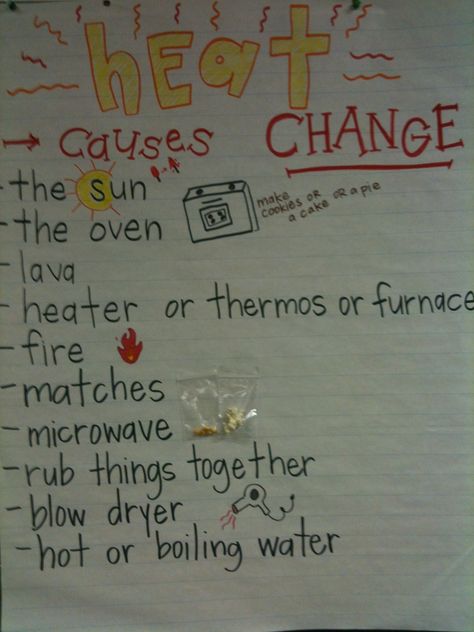 heat
→ causes CHANGE
-the sun
-the oven
make
cookies or
a cake or a pie
-lava
-heater or thermos or furnace
-fire
-matches
-microwave
-rub things together
-blow dryer
-hot or boiling water